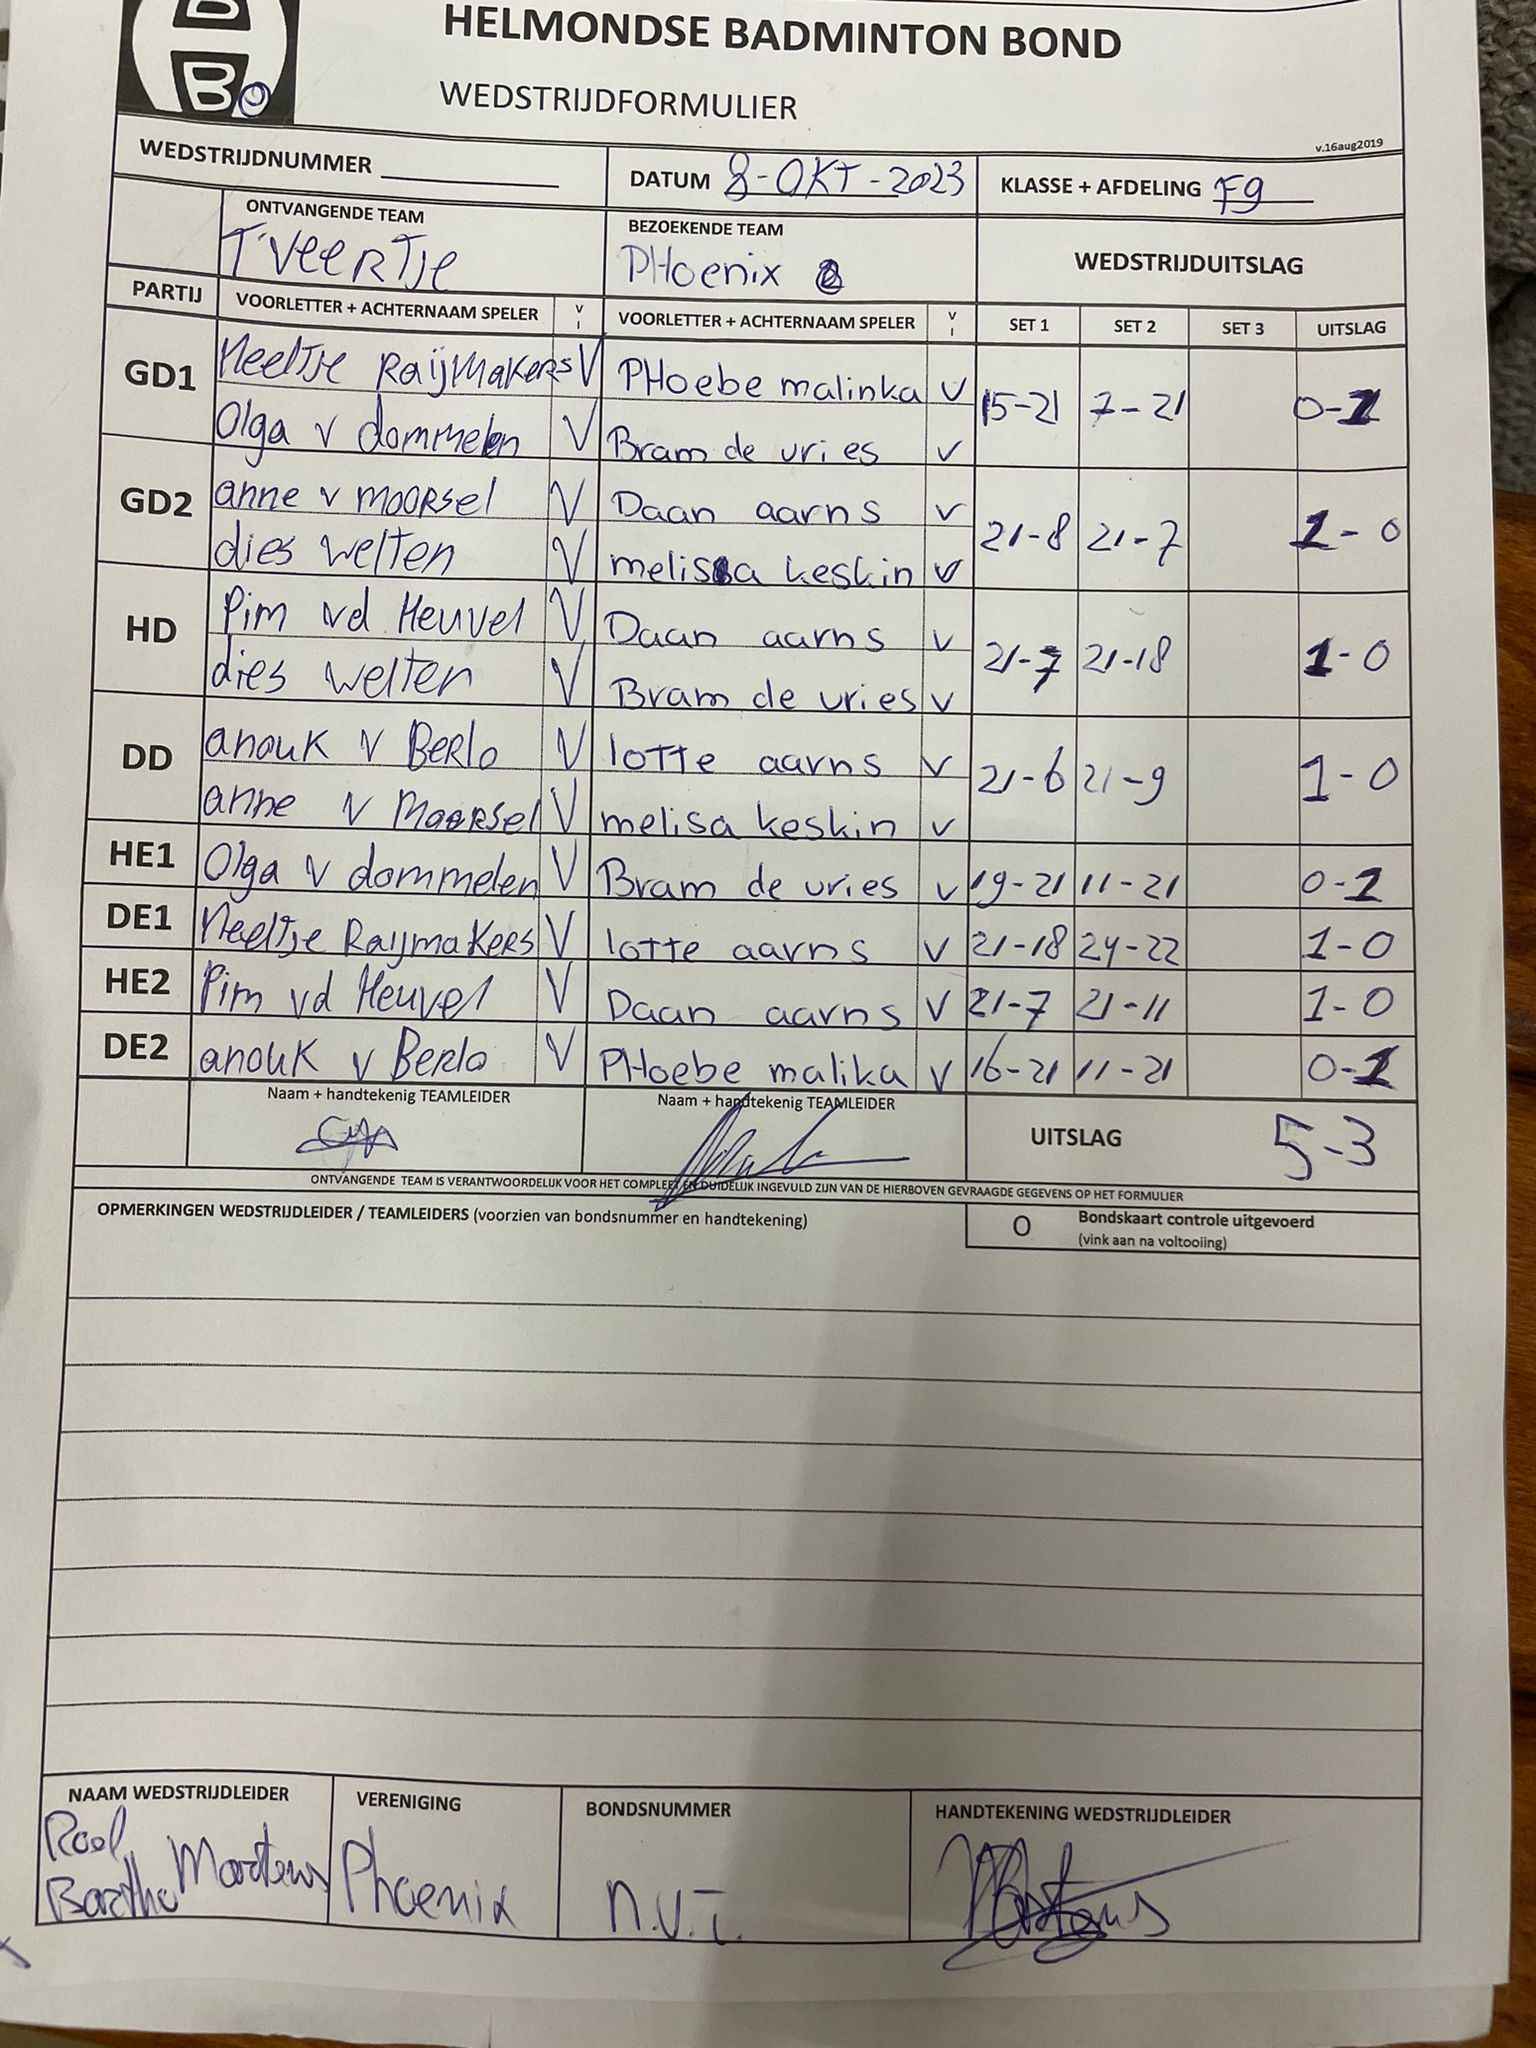 HELMONDSE BADMINTON BOND
WEDSTRIJDFORMULIER
v.16aug2019
WEDSTRIJDNUMMER DATUM 8-OKT-2023 KLASSE + AFDELING F9
ONTVANGENDE TEAM BEZOEKENDE TEAM WEDSTRIJDUITSLAG
T'VeeRTje PHoenix 2
PARTIJ VOORLETTER + ACHTERNAAM SPELER V I VOORLETTER + ACHTERNAAM SPELER V I SET 1 SET 2 SET 3 UITSLAG
GD1 Neeltje Raijmakers V PHoebe malinka V 15-21 7-21 0-1
Olga v dommelen V Bram de vries V
GD2 anne v MOORsel V Daan aarns V 21-8 21-7 1-0
dies welten V melisa keskin V
HD Pim vd Heuvel V Daan aarns V 21-7 21-18 1-0
dies welten V Bram de vries V
DD anouk v Berlo V lotte aarns V 21-6 21-9 1-0
anne v Moorsel V melisa keskin V
HE1 Olga v dommelen V Bram de vries V 19-21 11-21 0-1
DE1 Neeltje Raijmakers V lotte aarns V 21-18 24-22 1-0
HE2 Pim vd Heuvel V Daan aarns V 21-7 21-11 1-0
DE2 anouk v Berlo V PHoebe malika V 16-21 11-21 0-1
Naam + handtekenig TEAMLEIDER Naam + handtekenig TEAMLEIDER UITSLAG 5-3
ONTVANGENDE TEAM IS VERANTWOORDELIJK VOOR HET COMPLEET EN DUIDELIJK INGEVULD ZIJN VAN DE HIERBOVEN GEVRAAGDE GEGEVENS OP HET FORMULIER
OPMERKINGEN WEDSTRIJDLEIDER / TEAMLEIDERS (voorzien van bondsnummer en handtekening) O Bondskaart controle uitgevoerd
(vink aan na voltooiing)
NAAM WEDSTRIJDLEIDER VERENIGING BONDSNUMMER HANDTEKENING WEDSTRIJDLEIDER
Roel
Martens Phoenix n.v.t.